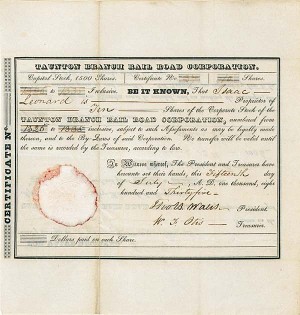 TAUNTON BRANCH RAIL ROAD CORPORATION.
Capital Stock, 2500 Shares. Certificate No. Shares.
to Inclusive. BE IT KNOWN, That Isaac
Leonard is Proprietor of
Ten Shares of the Corporate Stock of the
TAUNTON BRANCH RAIL ROAD CORPORATION, numbered from
to inclusive, subject to such Assessments as may be legally made
thereon, and to the By-Laws of said Corporation. No transfer will be valid until
the same is recorded by the Treasurer, according to law.
In Witness whereof, The President and Treasurer have
hereunto set their hands, this Fifteenth day
of July A. D. one thousand, eight
hundred and Thirtyfive
President.
W. Treasurer.
Dollars paid on each Share.
CERTIFICATE No.